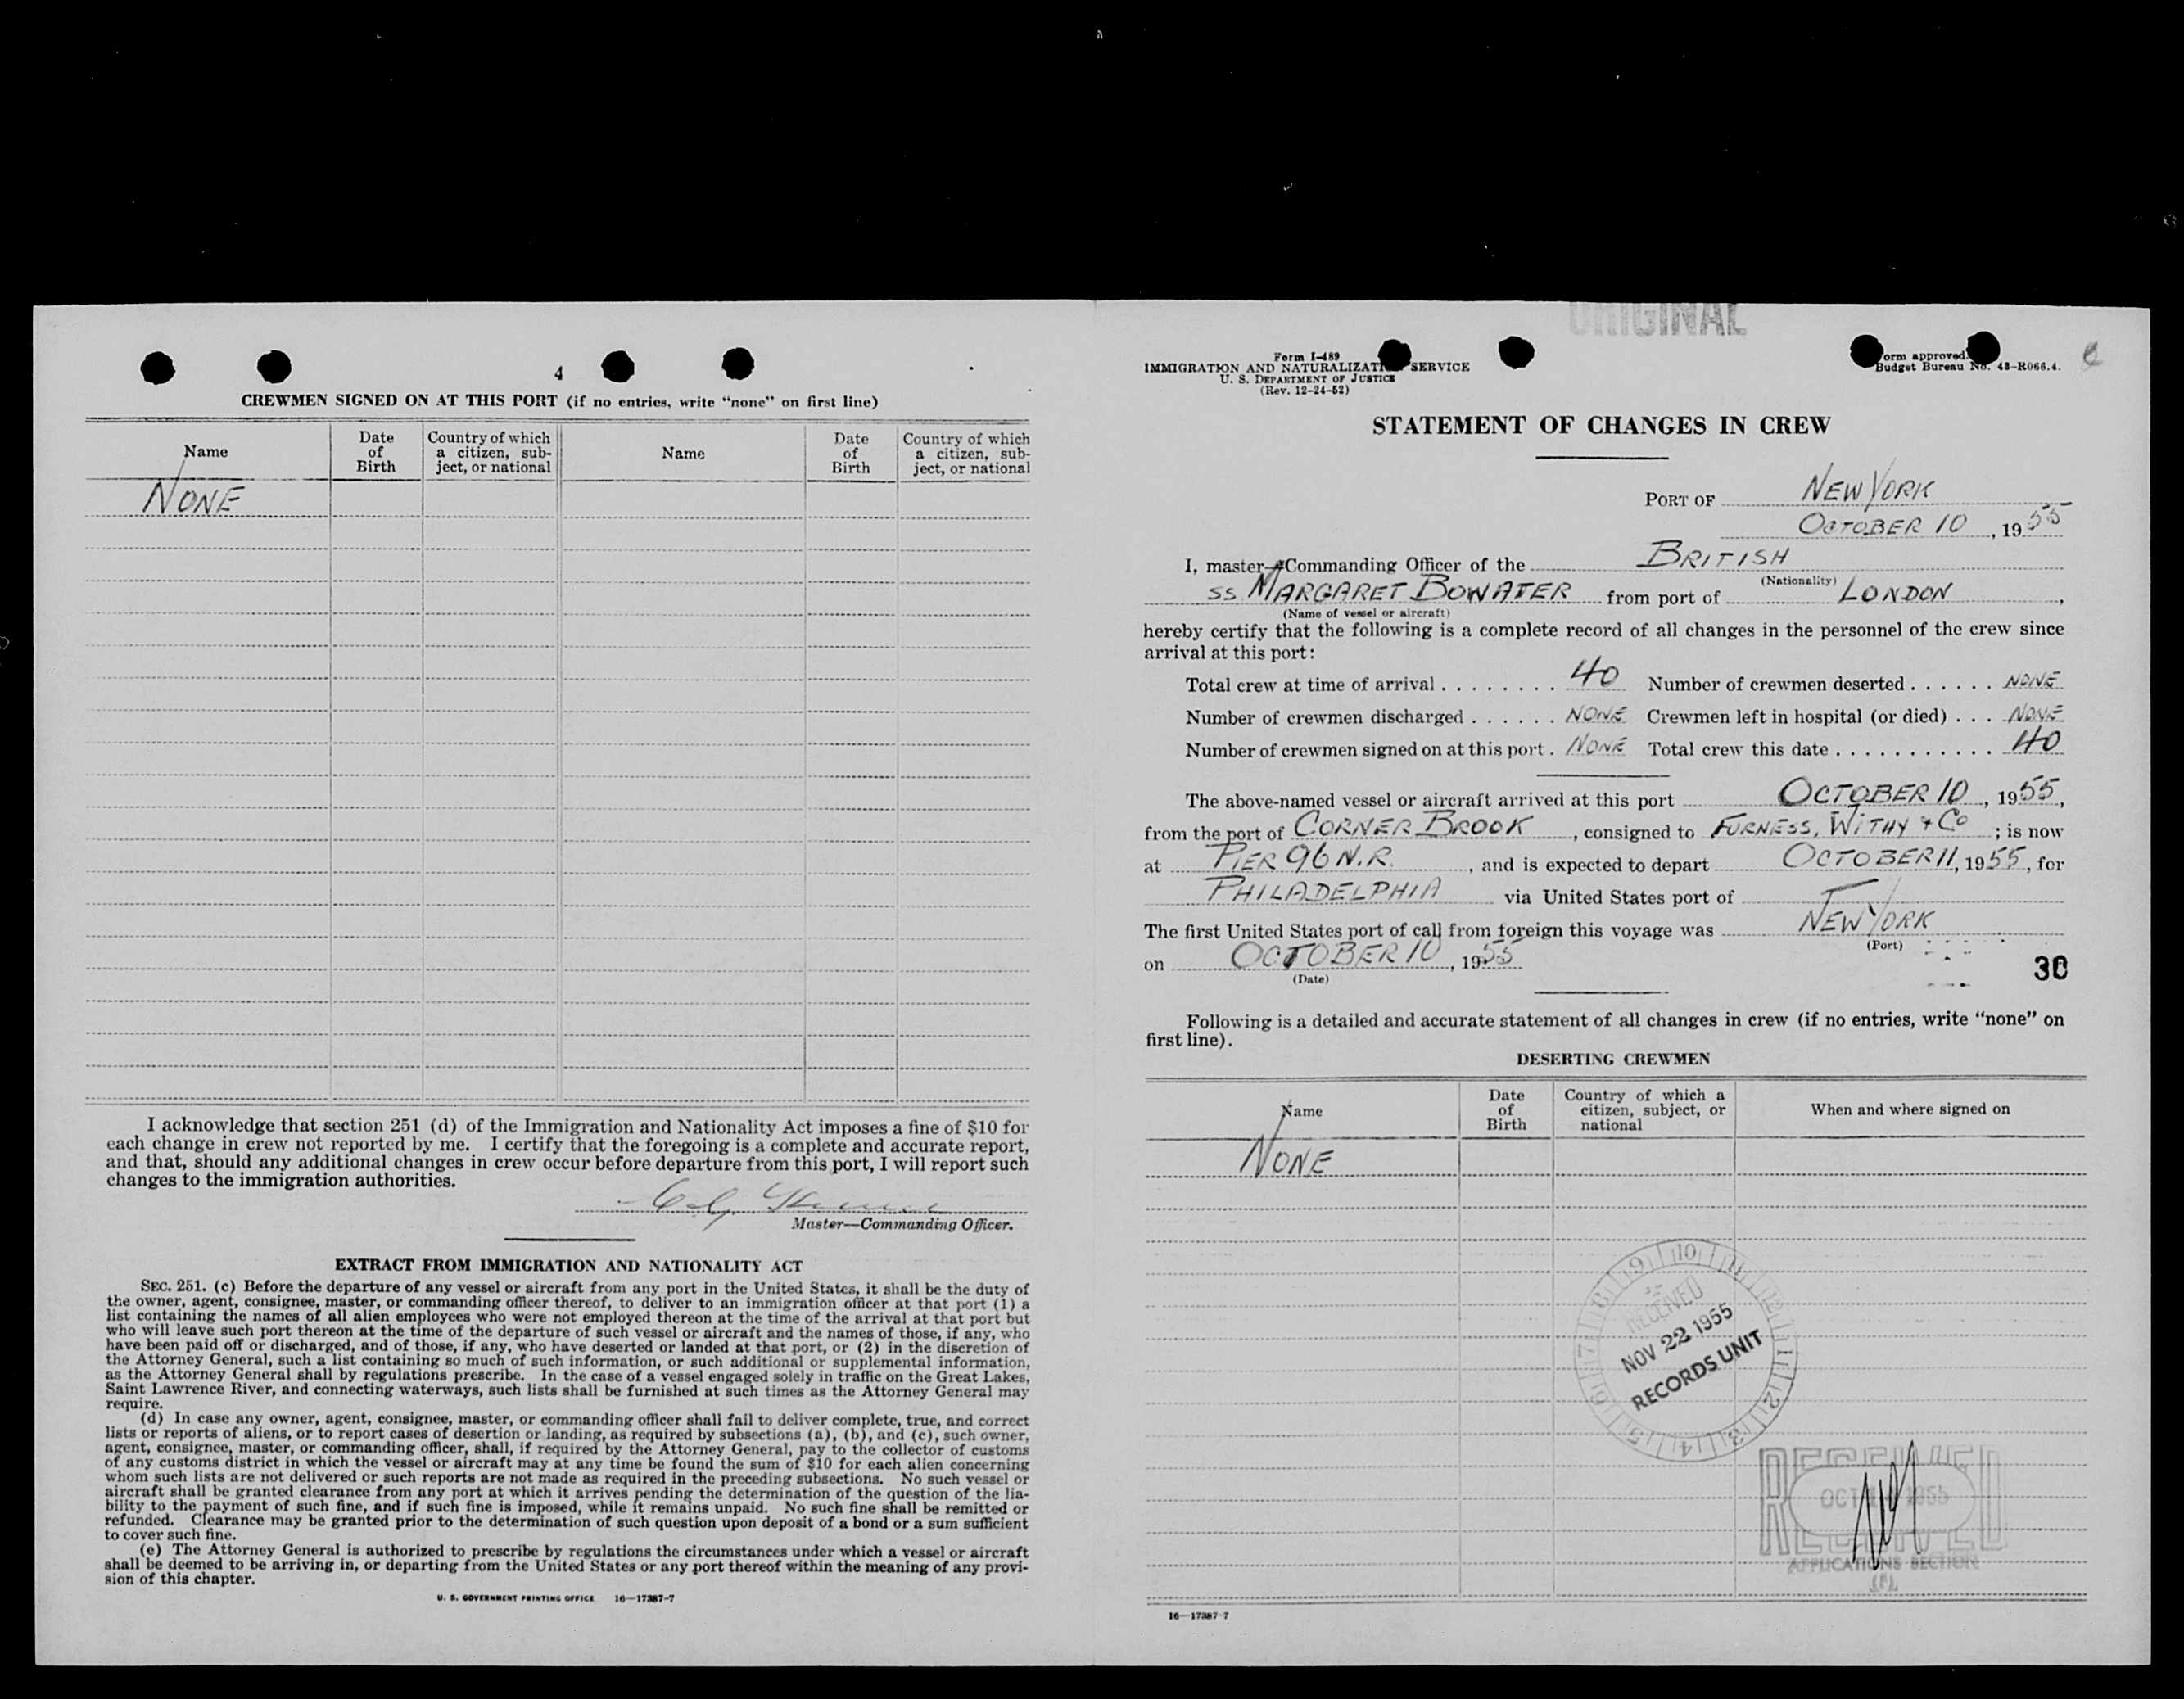 4
CREWMEN SIGNED ON AT THIS PORT (if no entries, write “none” on first line)
Name
Date of Birth
Country of which a citizen, subject, or national
Name
Date of Birth
Country of which a citizen, subject, or national
NONE
I acknowledge that section 251 (d) of the Immigration and Nationality Act imposes a fine of $10 for
each change in crew not reported by me. I certify that the foregoing is a complete and accurate report,
and that, should any additional changes in crew occur before departure from this port, I will report such
changes to the immigration authorities.
Master—Commanding Officer.
EXTRACT FROM IMMIGRATION AND NATIONALITY ACT
SEC. 251. (c) Before the departure of any vessel or aircraft from any port in the United States, it shall be the duty of
the owner, agent, consignee, master, or commanding officer thereof, to deliver to an immigration officer at that port (1) a
list containing the names of all alien employees who were not employed thereon at the time of the arrival at that port but
who will leave such port thereon at the time of the departure of such vessel or aircraft and the names of those, if any, who
have been paid off or discharged, and of those, if any, who have deserted or landed at that port, or (2) in the discretion of
the Attorney General, such a list containing so much of such information, or such additional or supplemental information,
as the Attorney General shall by regulations prescribe. In the case of a vessel engaged solely in traffic on the Great Lakes,
Saint Lawrence River, and connecting waterways, such lists shall be furnished at such times as the Attorney General may
require.
(d) In case any owner, agent, consignee, master, or commanding officer shall fail to deliver complete, true, and correct
lists or reports of aliens, or to report cases of desertion or landing, as required by subsections (a), (b), and (c), such owner,
agent, consignee, master, or commanding officer, shall, if required by the Attorney General, pay to the collector of customs
of any customs district in which the vessel or aircraft may at any time be found the sum of $10 for each alien concerning
whom such lists are not delivered or such reports are not made as required in the preceding subsections. No such vessel or
aircraft shall be granted clearance from any port at which it arrives pending the determination of the question of the lia-
bility to the payment of such fine, and if such fine is imposed, while it remains unpaid. No such fine shall be remitted or
refunded. Clearance may be granted prior to the determination of such question upon deposit of a bond or a sum sufficient
to cover such fine.
(e) The Attorney General is authorized to prescribe by regulations the circumstances under which a vessel or aircraft
shall be deemed to be arriving in, or departing from the United States or any port thereof within the meaning of any provi-
sion of this chapter.
U. S. GOVERNMENT PRINTING OFFICE 16—17387-7
ORIGINAL
Form I-489
IMMIGRATION AND NATURALIZATION SERVICE
U. S. DEPARTMENT OF JUSTICE
(Rev. 12-24-52)
orm approved.
Budget Bureau No. 43-R066.4.
STATEMENT OF CHANGES IN CREW
PORT OF NEW YORK
OCTOBER 10, 1955
I, master—Commanding Officer of the BRITISH
(Nationality)
SS MARGARET BOWATER from port of LONDON,
(Name of vessel or aircraft)
hereby certify that the following is a complete record of all changes in the personnel of the crew since
arrival at this port:
Total crew at time of arrival ........ 40 Number of crewmen deserted ...... NONE
Number of crewmen discharged ...... NONE Crewmen left in hospital (or died) ... NONE
Number of crewmen signed on at this port . NONE Total crew this date ........... 40
The above-named vessel or aircraft arrived at this port OCTOBER 10, 1955,
from the port of CORNER BROOK, consigned to FURNESS, WITHY & Co; is now
at PIER 96 N.R., and is expected to depart OCTOBER 11, 1955, for
PHILADELPHIA via United States port of
The first United States port of call from foreign this voyage was NEW YORK
(Port)
on OCTOBER 10, 1955
(Date)
30
Following is a detailed and accurate statement of all changes in crew (if no entries, write “none” on
first line).
DESERTING CREWMEN
Name
Date of Birth
Country of which a citizen, subject, or national
When and where signed on
NONE
9 10 11 12 1 2 3 4 5 6 7 8
RECEIVED
NOV 22 1955
RECORDS UNIT
RECEIVED
OCT 1955
RECEIVED
APPLICATIONS SECTION
16—17387-7